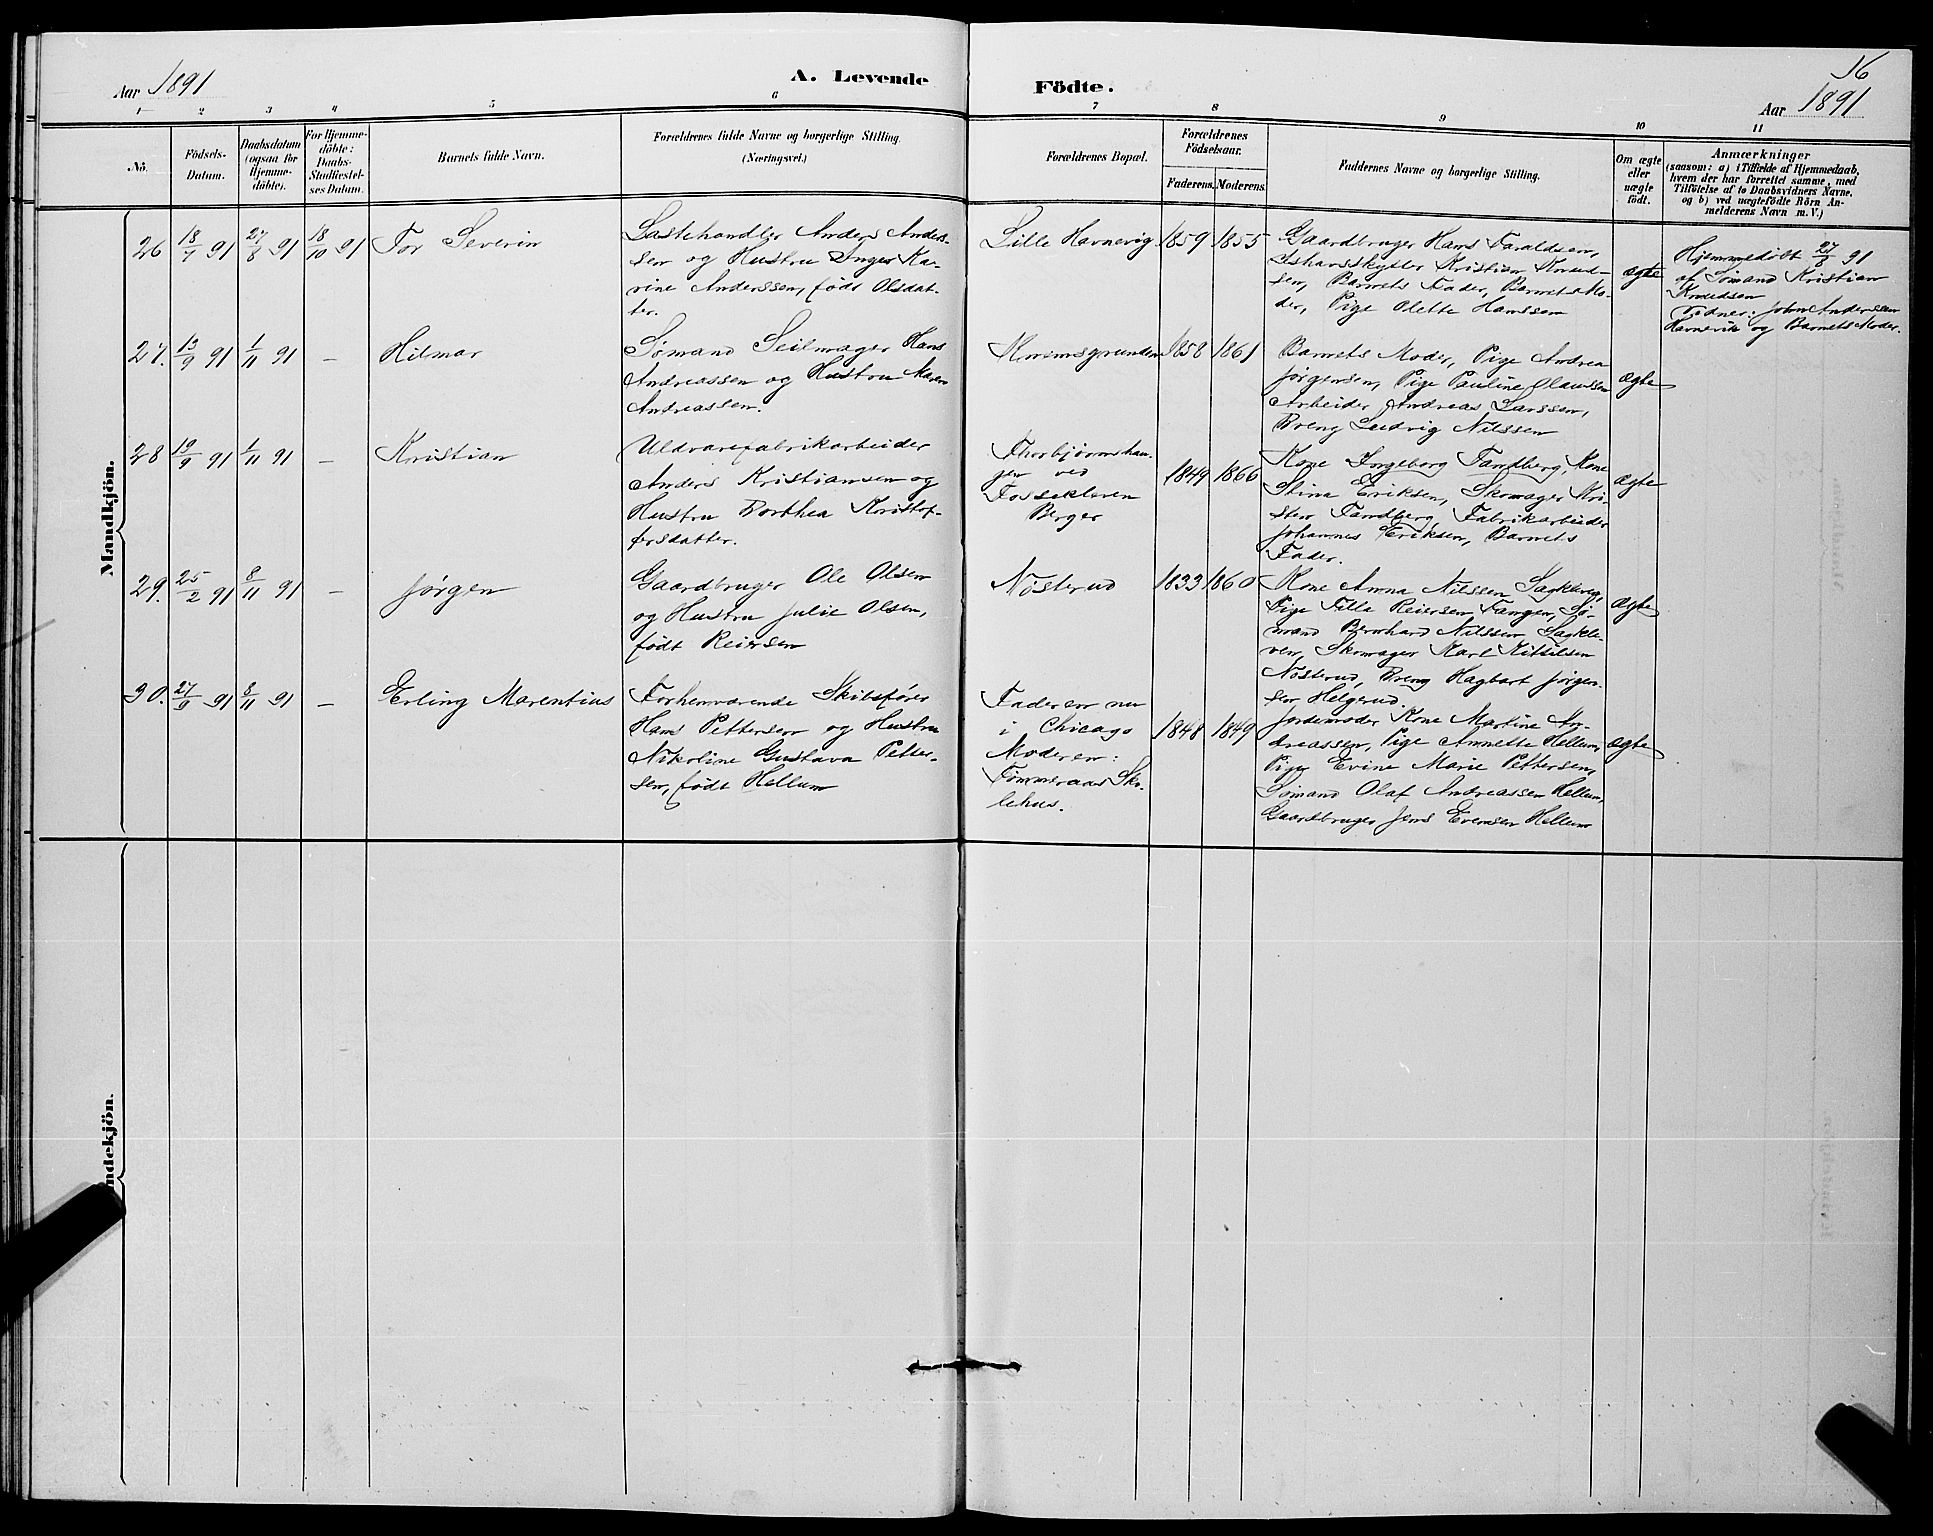 Aar 1891
A. Levende
Födte.
16
Aar 1891
1 2 3 4 5 6 7 8 9 10 11
No.
Födsels-Datum.
Daabsdatum (ogsaa for Hjemme-döbte).
For Hjemme-döbte: Daabs-Stadfæstel-ses Datum.
Barnets fulde Navn.
Forældrenes fulde Navne og borgerlige Stilling.
(Næringsvei.)
Forældrenes Bopæl.
Forældrenes Födselsaar.
Faderens. Moderens.
Faddernes Navne og borgerlige Stilling.
Om ægte eller uægte födt.
Anmærkninger
(saasom: a) i Tilfælde af Hjemmedaab,
hvem der har forrettet samme, med
Tilföielse af to Daabsvidners Navne,
og b) ved uægtefödte Börn An-
melderens Navn m. V.)
Mandkjön.
26 18/7 91 27/8 91 18/10 91 Tor Severin
Lastehandler Anders Anders-
sen og Hustru Inger Ka-
rine Anderssen, født Olsdat-
ter.
Lille Havnevig 1859 1855
Gaardbruger Hans Taraldsen,
Ishavsskytter Kristian Knud-
sen, Barnets Fader, Barnets Mo-
der, Pige Olette Hanssen
ægte
Hjemmedøbt 27/8 91
af Sømand Kristian
Knudsen
Vidner: John Anderssen
Havnevik og Barnets Moder.
27. 19/9 91 1/11 91 – Hilmar
Sømand Seilmager Hans
Andreassen og Hustru Maren
Andreassen.
1858 1861
Barnets Moder, Pige Andrea
Jørgensen, Pige Pauline Olaussen
Arbeider Andreas Larssen,
Dreng Ludvig Nilssen
ægte
28 10/9 91 1/11 91 – Kristian
Uldvarefabrikarbeider
Anders Kristiansen og
Hustru Dorthea Kristof-
fersdatter.
Thorbjørnshau-
gen ved
Fossekleven
Berger
1849 1866
Kone Ingeborg Tandberg, Kone
Stina Eriksen, Skomager Kri-
sten Tandberg, Fabrikarbeider
Johannes Eriksen, Barnets
Fader.
ægte
29. 25/2 91 8/11 91 – Jørgen
Gaardbruger Ole Olsen
og Hustru Julie Olsen,
født Reiersen
Nøsterud 1833 1860
Kone Anna Nilssen Sagkleven,
Pige Tilla Reiersen Tangen, Sø-
mand Bernhard Nilssen Sagkle-
ven, Skomager Karl Kittilsen
Nøsterud, Dreng Hagbart Jørgen-
sen Helgerud.
ægte
30. 27/9 91 8/11 91 – Erling Marentius
Forhenværende Skibsfører
Hans Pettersen og Hustru
Nikoline Gustava Petter-
sen, født Hellum
Faderen nu
i Chicago
Moderen:
Tømmeraas Sko-
lehus.
1848 1849
Jordemoder Kone Martine An-
dreassen, Pige Annette Hellum,
Pige Evine Marie Pettersen,
Sømand Olaf Andreassen Hellum,
Gaardbruger Jens Evensen Hellum
ægte